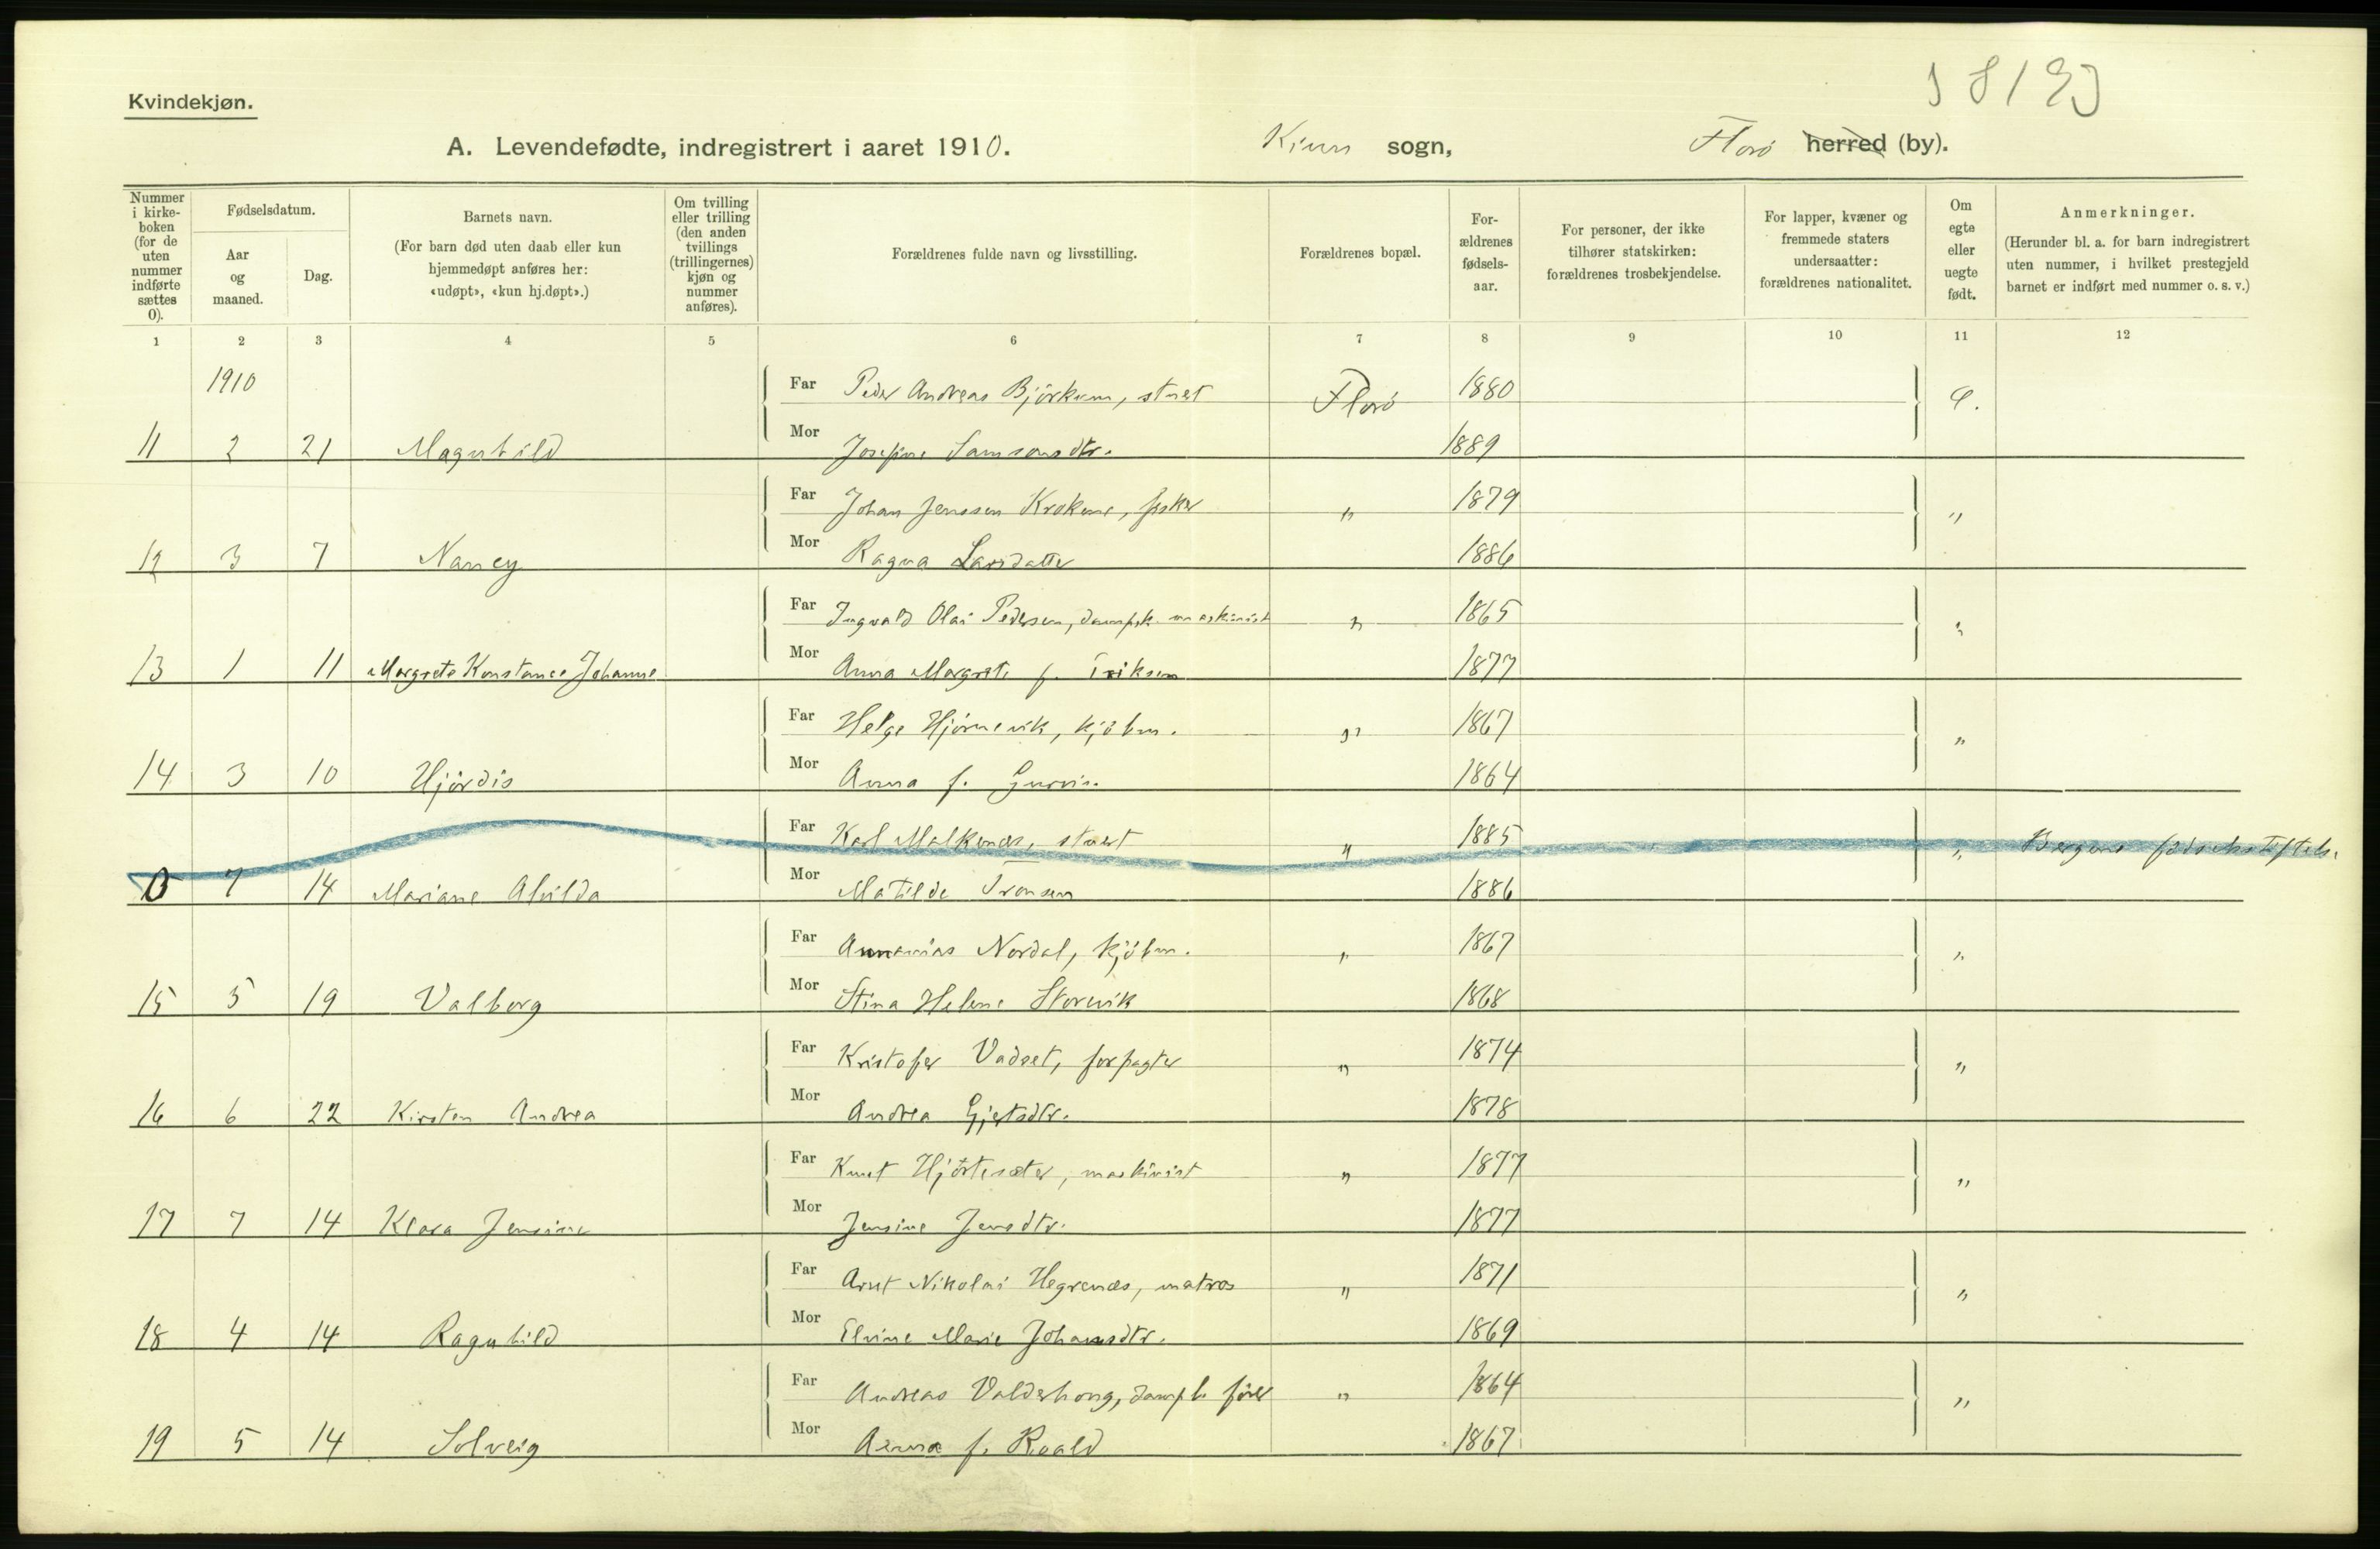 Kvindekjøn.
A. Levendefødte, indregistrert i aaret 1910. Kinn sogn, Florö herred (by).
Nummer i kirke-boken (for de uten nummer indførte sættes 0).
Fødselsdatum.
Aar og maaned.
Dag.
Barnets navn.
(For barn død uten daab eller kun hjemmedøpt anføres her: «udøpt», «kun hj.døpt».)
Om tvilling eller trilling (den anden tvillings (trillingernes) kjøn og nummer anføres).
Forældrenes fulde navn og livsstilling.
Forældrenes bopæl.
For-ældrenes fødsels-aar.
For personer, der ikke tilhører statskirken: forældrenes trosbekjendelse.
For lapper, kvæner og fremmede staters undersaatter: forældrenes nationalitet.
Om egte eller uegte født.
Anmerkninger.
(Herunder bl. a. for barn indregistrert uten nummer, i hvilket prestegjeld barnet er indført med nummer o. s. v.)
1 2 3 4 5 6 7 8 9 10 11 12
1910 Far Peder Andreas Björkum, Florö 1880
11 2 21 Magnhild Mor Josefine Samsonsdtr. 1889
Far Johan Jenssen Krokene, fisker " 1879 "
12 3 7 Nancy Mor Ragna Larsdatter 1886
Far Ingvald Olai Pedersen, dampsk. maskinist " 1865 "
13 1 11 Margrete Konstance Johanne Mor Anna Margrete f. Eriksen 1877
Far Helge Hjörnevik, kjöbm. " 1867 "
14 3 10 Hjördis Mor Anna f. 1864
Far Karl Malkenæs, " 1885 " Bergens födselsstiftelse
0 7 14 Mariane Alvilda Mor Matilde Tronsen 1886
Far Annanias Nordal, kjöbm. " 1867 "
15 5 19 Valborg Mor Stina Helene Storevik 1868
Far Kristofer Vadset, forpagter " 1874 "
16 6 22 Kirsten Andrea Mor Andrea Gjertsdtr. 1878
Far Knut Hjörtesæter, maskinist " 1877 "
17 7 14 Klara Jensine Mor Jensine Jensdtr. 1877
Far Arnt Nikolai Hegrenæs, matros " 1871 "
18 4 14 Ragnhild Mor Elvine Marie Johansdtr. 1869
Far Andreas Valderhong, dampsk. förer " 1864 "
19 5 14 Solveig Mor Anna f. Roald 1867